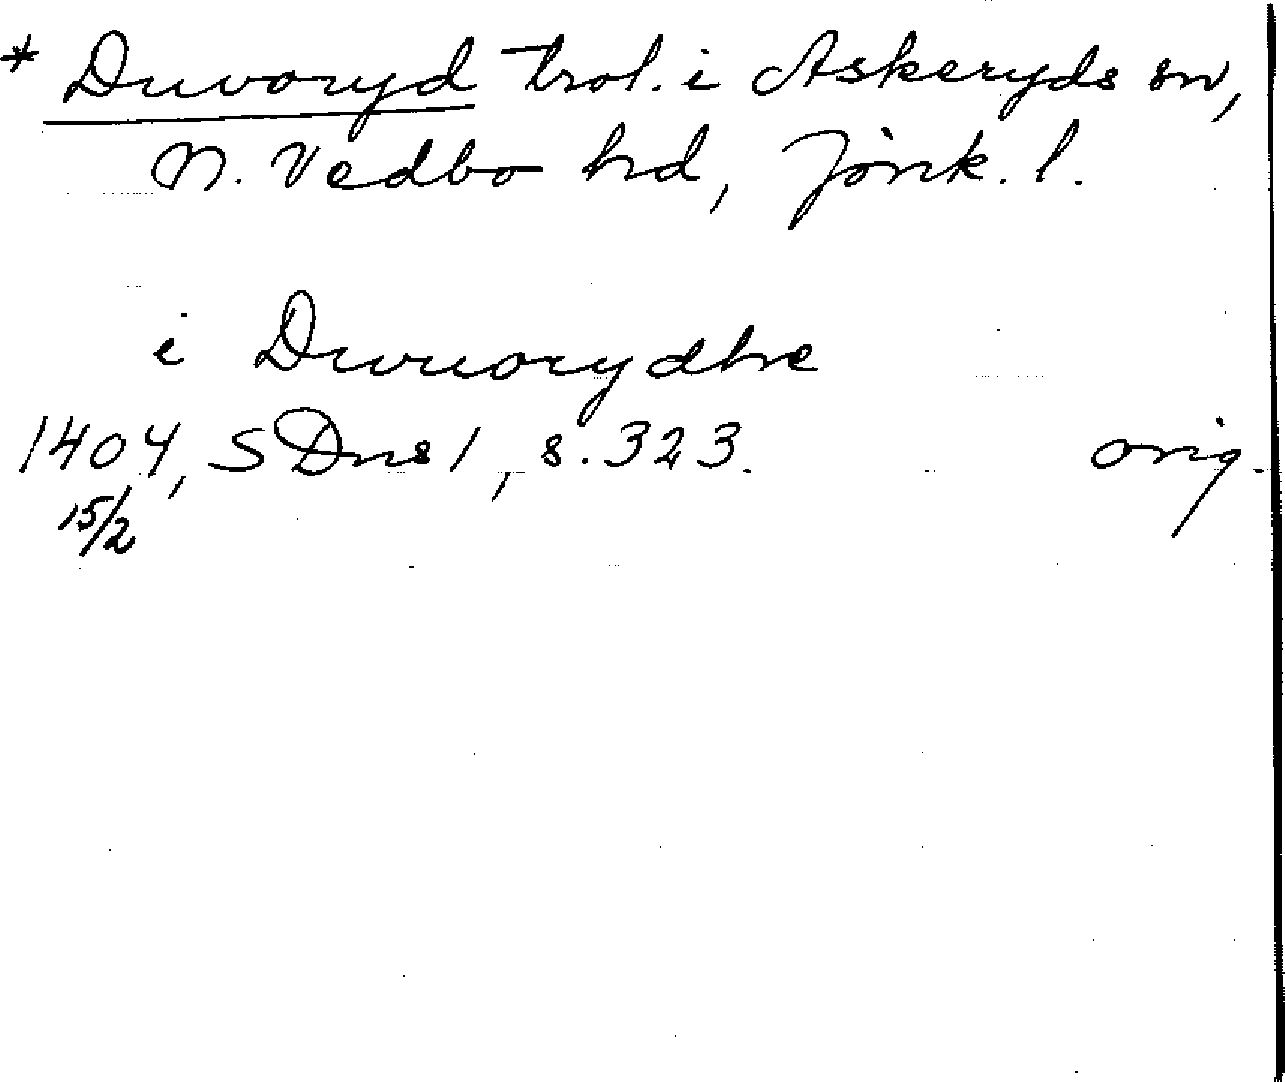 * Duvoryd trol. i Askeryds sn,
N. Vedbo hd, Jönk. l.
i Duuorydhe
1404, SDns 1, s. 323. orig.
15/2